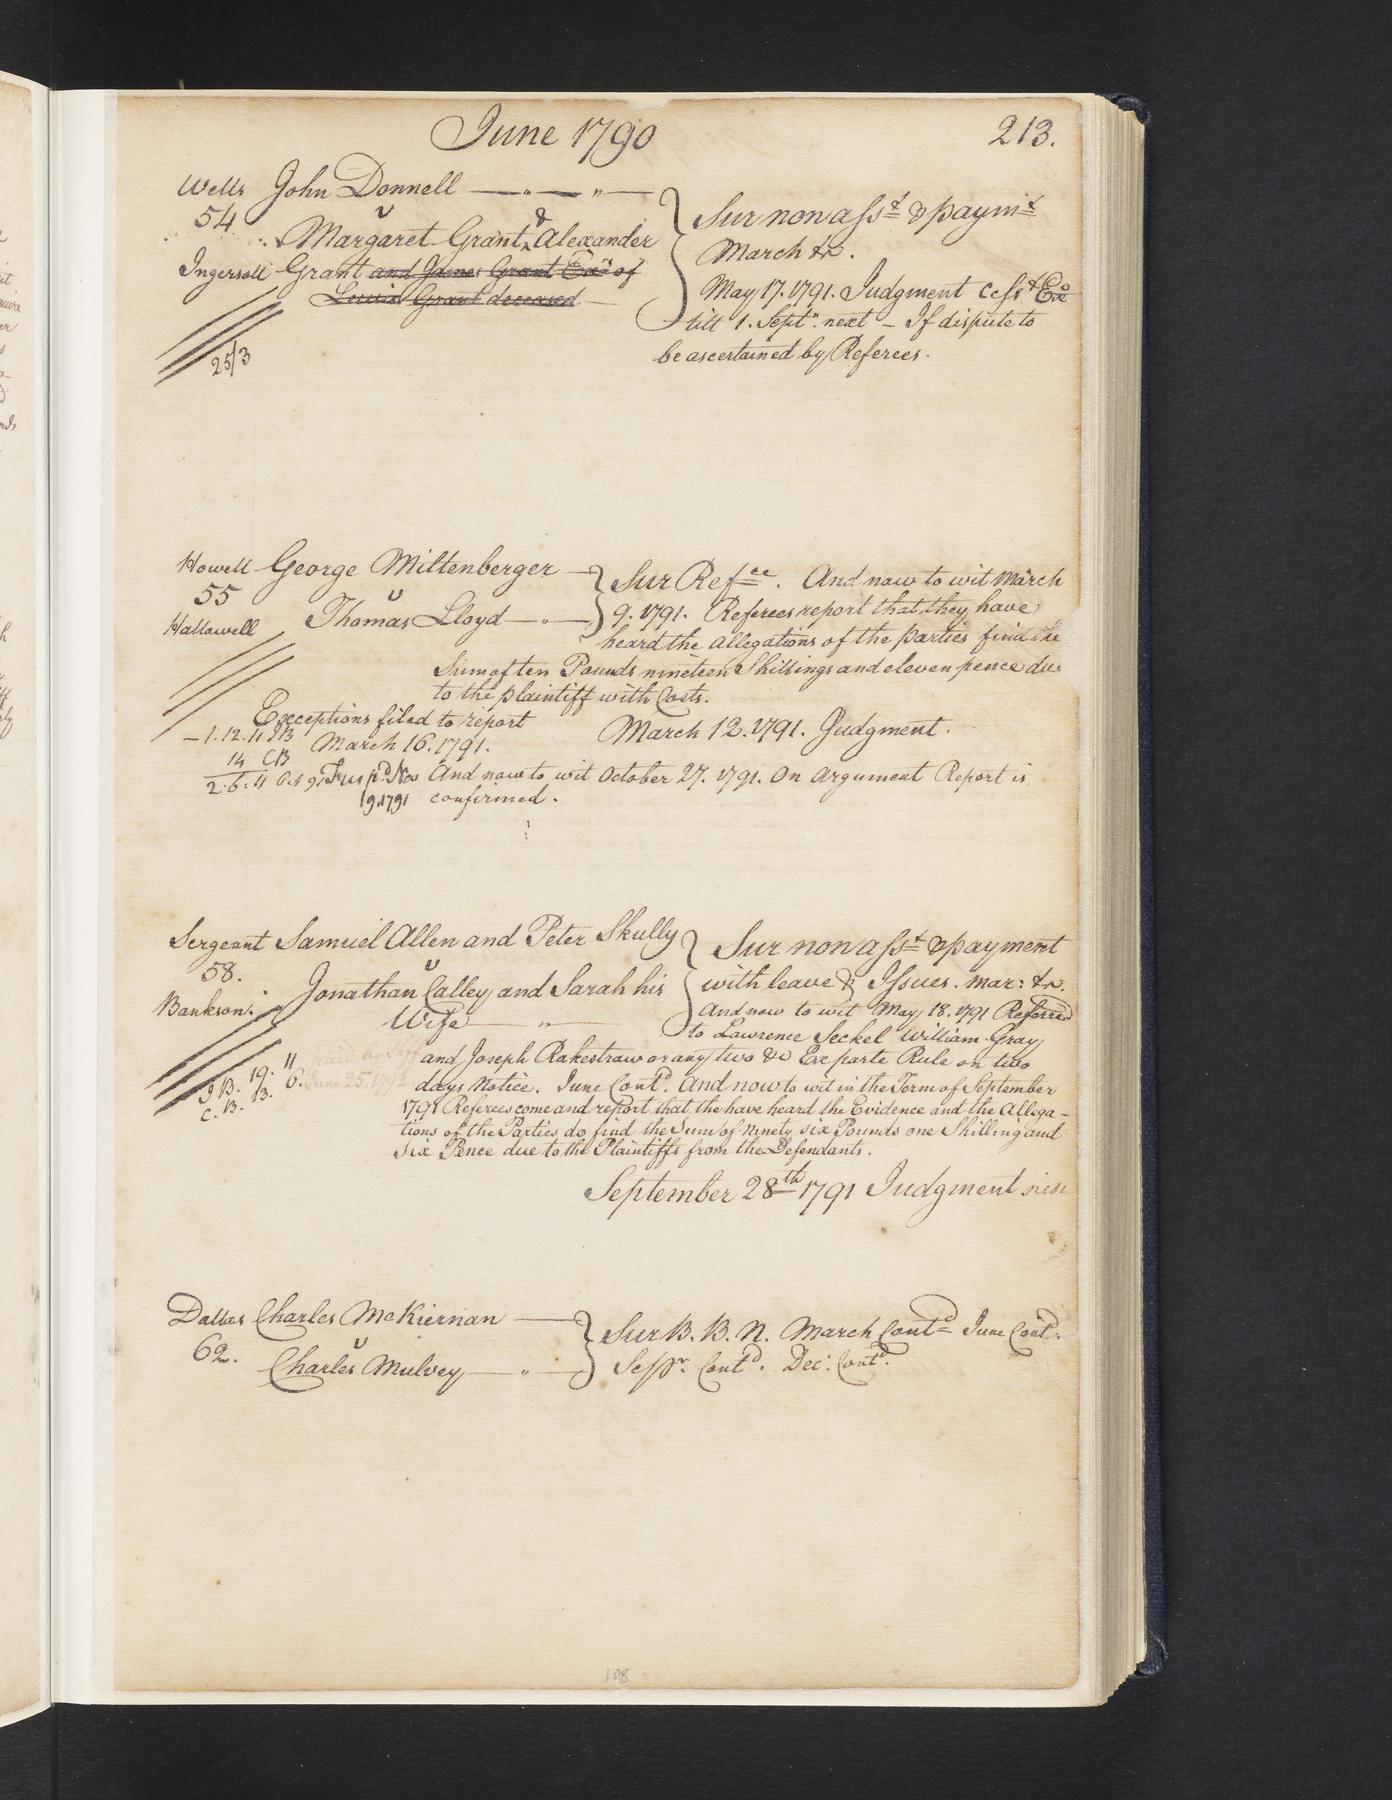 June 1790
213.
Wells John Donnell
54 v &
Margaret Grant, Alexander
Ingersoll Grant and James Grant Exrs of
Lewis Grant deceased
25/3
Sur non asst & paymt
March &c.
May 17. 1791. Judgment cesst Exo
till 1. Septr. next - If dispute to
be ascertained by Referees.
Howell George Miltenberger
55 v
Hallowell Thomas Lloyd
Sur Refce. And now to wit March
9. 1791. Referees report that they have
heard the Allegations of the parties find the
Sum of ten Pounds nineteen Shillings and eleven pence due
to the plaintiff with Costs.
Exceptions filed to report
March 16. 1791.
March 12. 1791. Judgment.
1. 12. 11 JB
14 CB
2. 6. 11
And now to wit October 27. 1791. On Argument Report is
9. 1791 confirmed.
Sergeant Samuel Allen and Peter Skully
58. v
Bankson. Jonathan Calley and Sarah his
Wife
Sur non asst & payment
with leave & Issues. Mar: &c.
And now to wit May 18. 1791 Referred
to Lawrence Seckel William Gray
and Joseph Rakestraw or any two &c Ex parte Rule on two
days Notice. June Contd. And now to wit in the Term of September
1791 Referees come and report that the have heard the Evidence and the Allega-
tions of the Parties do find the Sum of Ninety six Pounds one Shilling and
Six Pence due to the Plaintiffs from the Defendants.
paid by
June 25. 1792
J B. 19. 11
C. B. 13. 6.
September 28th 1791 Judgment nisi
Dallas Charles McKiernan
62. v
Charles Mulvey
Sur B. B. N. March Contd June Contd.
Sepr. Contd. Dec: Contd.
108